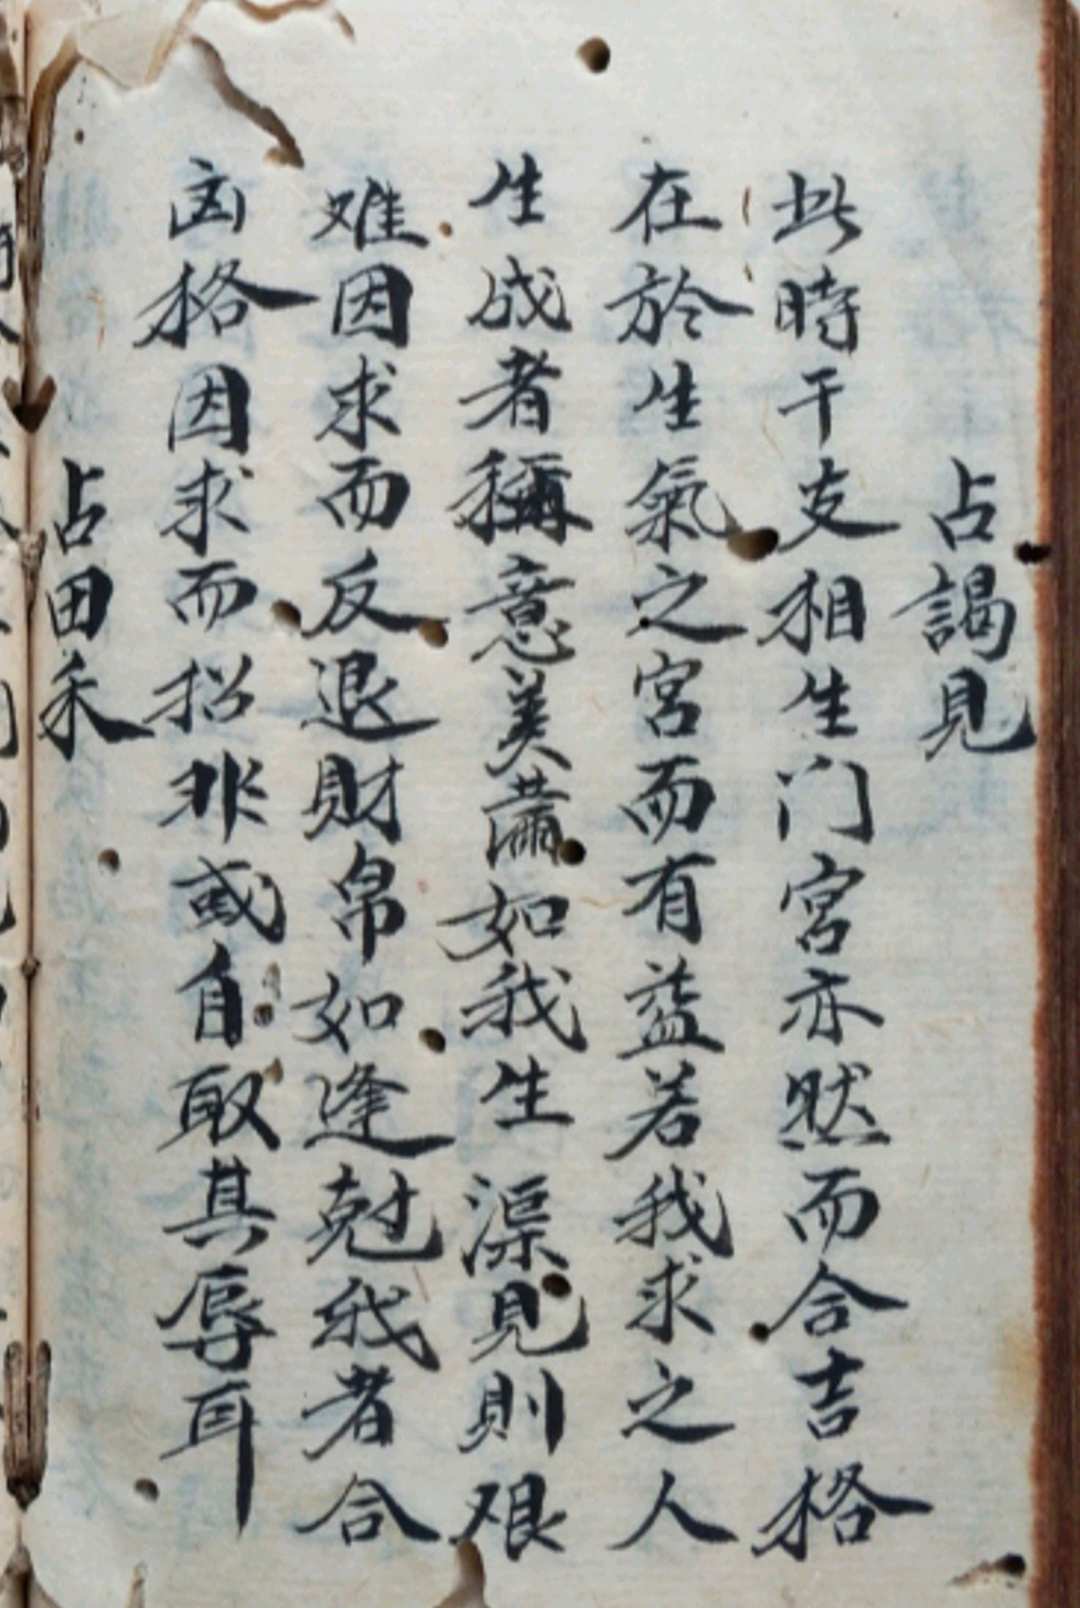 占謁見
此時干支相生门宮亦然而合吉格
在於生氣之宮而有益若我求之人
生成者稱意美滿如我生渠見則艰
难因求而反退財帛如逢尅我者合
凶格因求而招非或自取其辱耳
占田禾